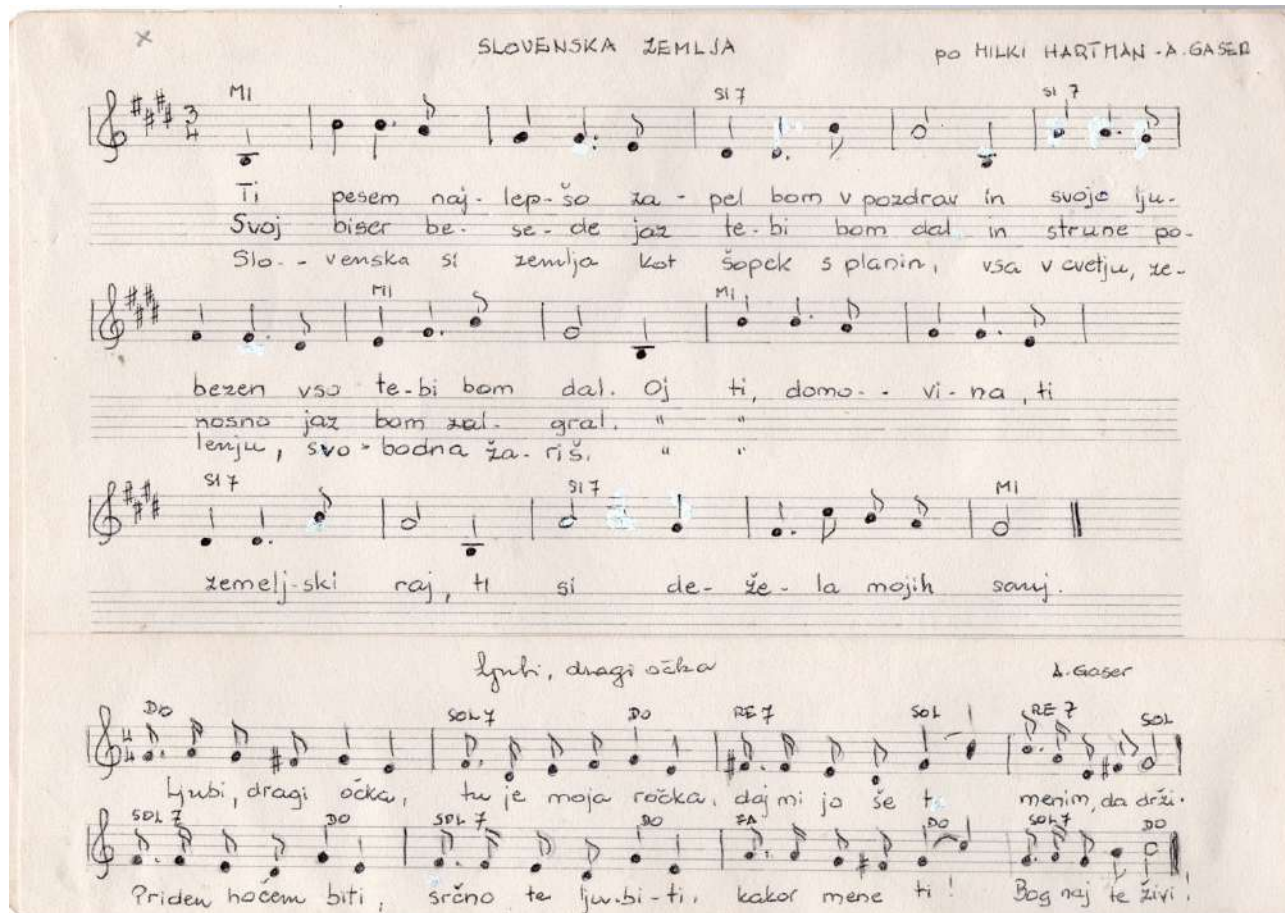 SLOVENSKA ZEMLJA
po MILKI HARTMAN - A. GASER
MI SI 7 SI 7
3
4
Ti pesem naj- lep-šo za- pel bom v pozdrav in svojo lju-
Svoj biser be- se- de jaz te- bi bom dal in strune po-
Slo- - venska si zemlja kot šopek s planin, vsa v cvetju, ze-
MI MI
bezen vso te-bi bom dal. Oj ti, domo- - vi- na, ti
nosno jaz bom zai- gral. " "
lenju, svo- bodna ža- riš. " "
SI 7 SI 7 MI
zemelj-ski raj, ti si de- že- la mojih sanj.
Ljubi, dragi očka
A. Gaser
DO SOL 7 DO RE 7 SOL RE 7 SOL
4
4
Ljubi, dragi očka, tu je moja ročka, daj mi jo še ti menim, da drži.
SOL 7 DO SOL 7 DO FA DO SOL 7 DO
Priden hočem biti, srčno te lju-bi-ti, kakor mene ti! Bog naj te živi!